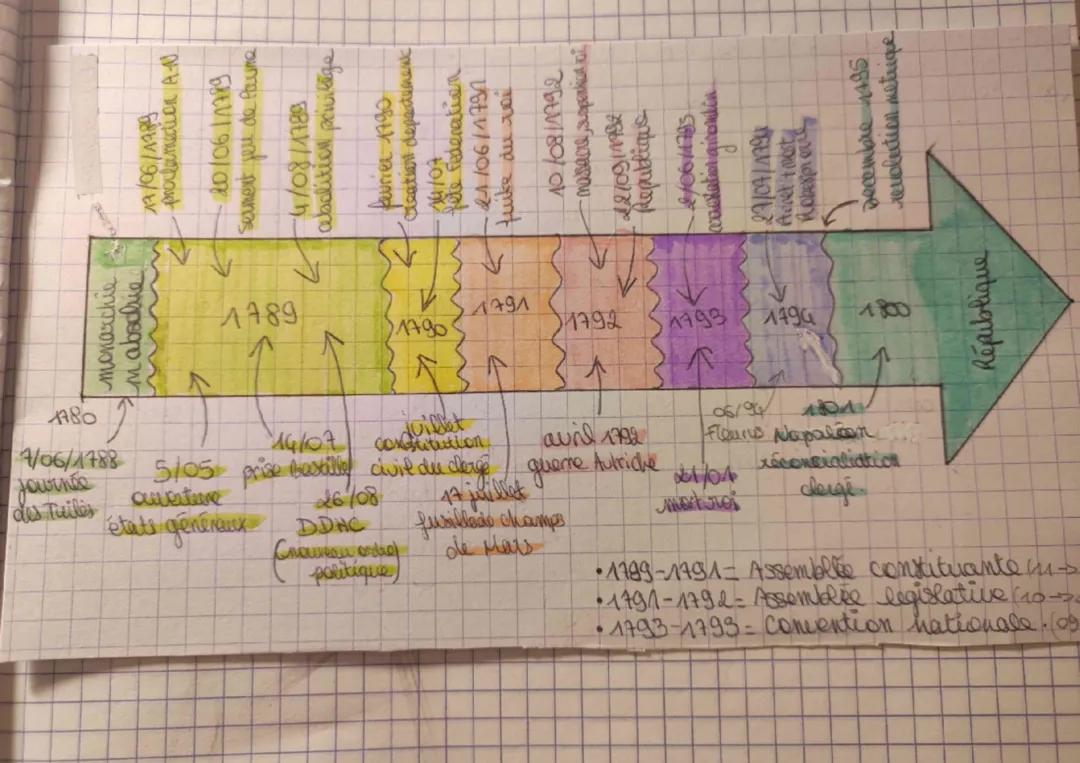 17/06/1789
proclamation A.N
20/06/1789
serment jeu de Paume
4/08/1789
abolition privilège
février 1790
création département
14/07
fête Fédération
21/06/1791
fuite du roi
10/08/1792
22/09/1792
République
2/06/1793
27/07/1794
Arrêt + mort
Robespierre
Décembre 1795
monarchie
absolue
1789
1790
1791
1792
1793
1794
1800
République
1780
7/06/1788
journée
des Tuiles
5/05
ouverture
états généraux
14/07
prise Bastille
26/08
DDHC
(nouveau ordre
politique)
juillet
constitution
civil du clergé
17 juillet
fusillade champs
de Mars
avril 1792
guerre Autriche
21/01
mort roi
06/94
Fleurus
1801
Napoléon
réconcialiation
clergé
• 1789-1791 = Assemblée constituante (11->
• 1791-1792 = Assemblée législative (10->
• 1793-1793 = Convention nationale. (09